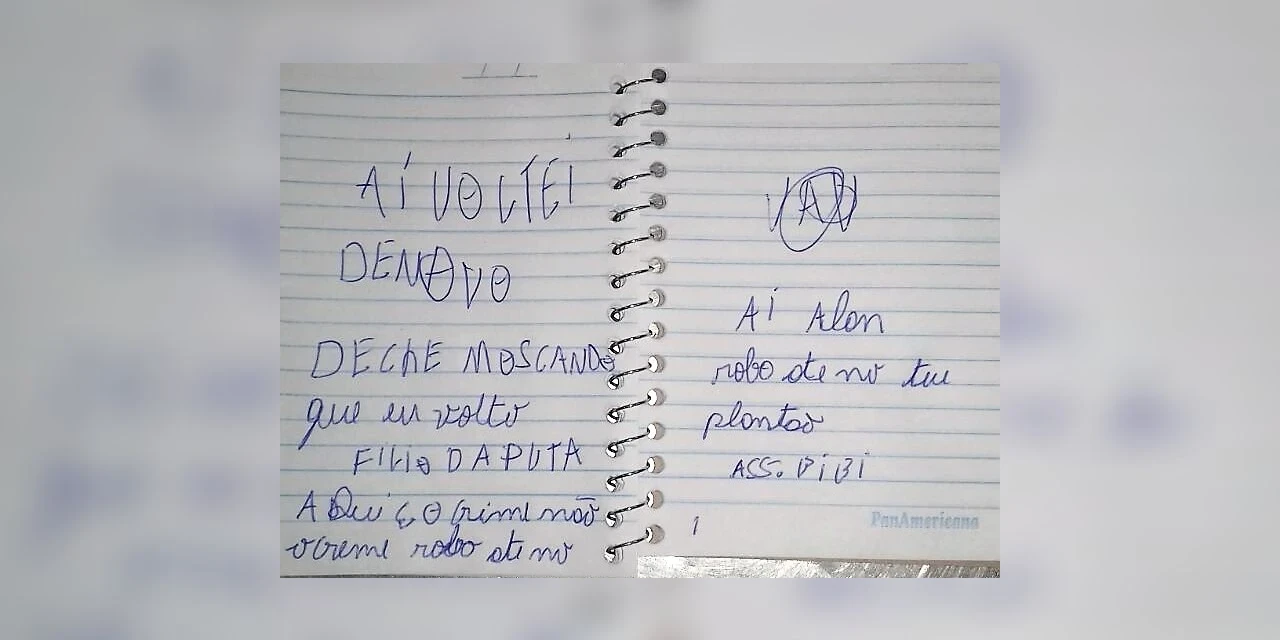 AÍ VOLTEI
DENOVO
DECHE MOSCANDO
que eu volto
FILIO DA PUTA
AQui É O Crime não
o creme robo ate no
AÍ Alan
robo ate no teu
plantao
ASS. BiBi
1
PanAmericana